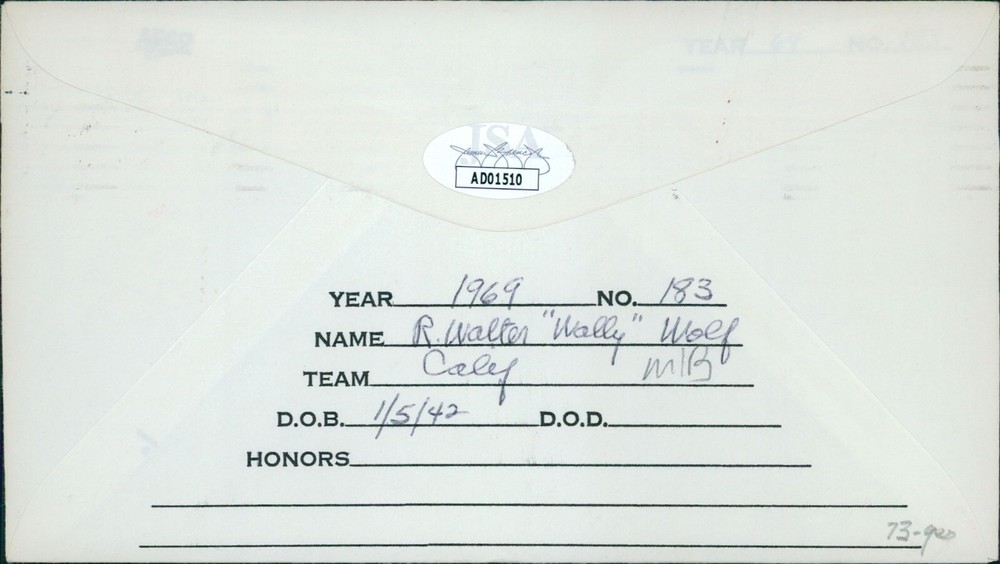 JSA
AD01510
YEAR 1969 NO. 183
NAME R. Walter "Wally" Wolf
TEAM Calif M/B
D.O.B. 1/5/42 D.O.D.
HONORS